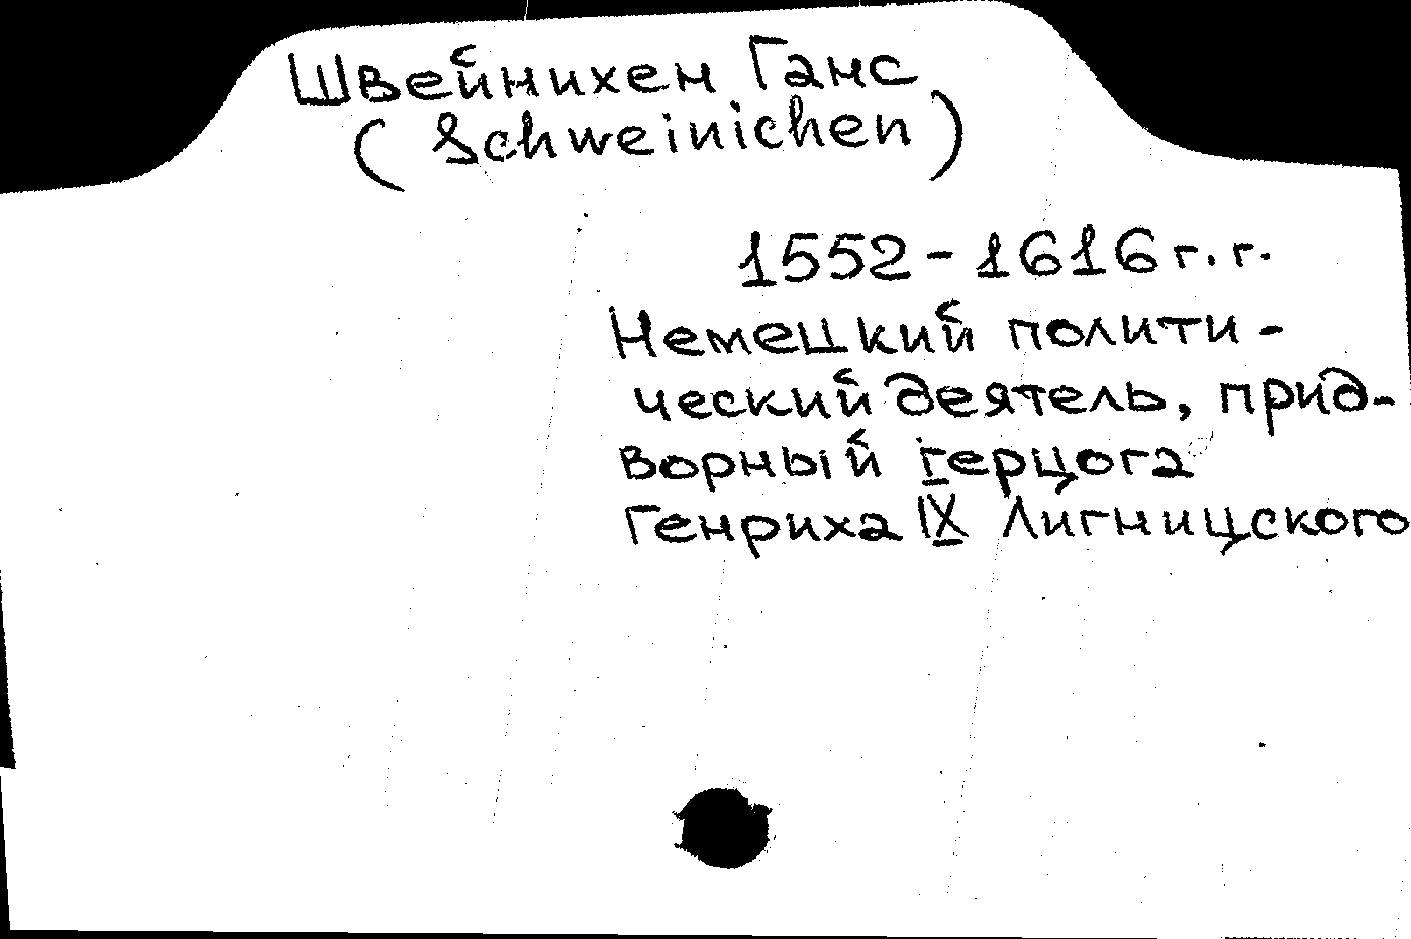 Швейнихен Ганс
(Schweinichen)
1552-1616 г.г.
Немецкий полити-
ческий деятель, прид-
ворный герцога
Генриха IX Лигницского